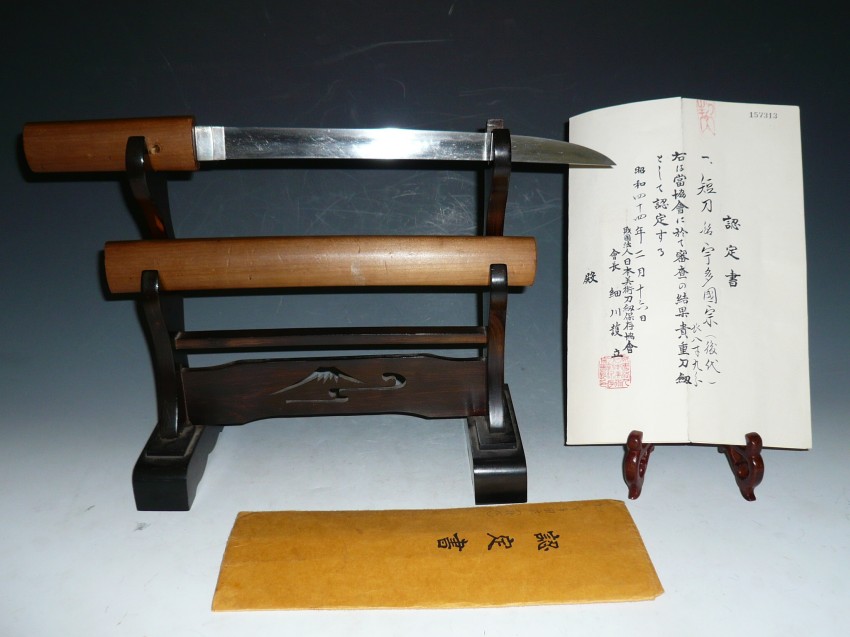 157313
認定書
一、短刀 銘 宇多國宗(後代)
長八寸九分
右は當協會に於て審査の結果貴重刀劔
として認定する
昭和四十四年二月十六日
財團法人日本美術刀劔保存協會
會長 細川護立
殿
認定書